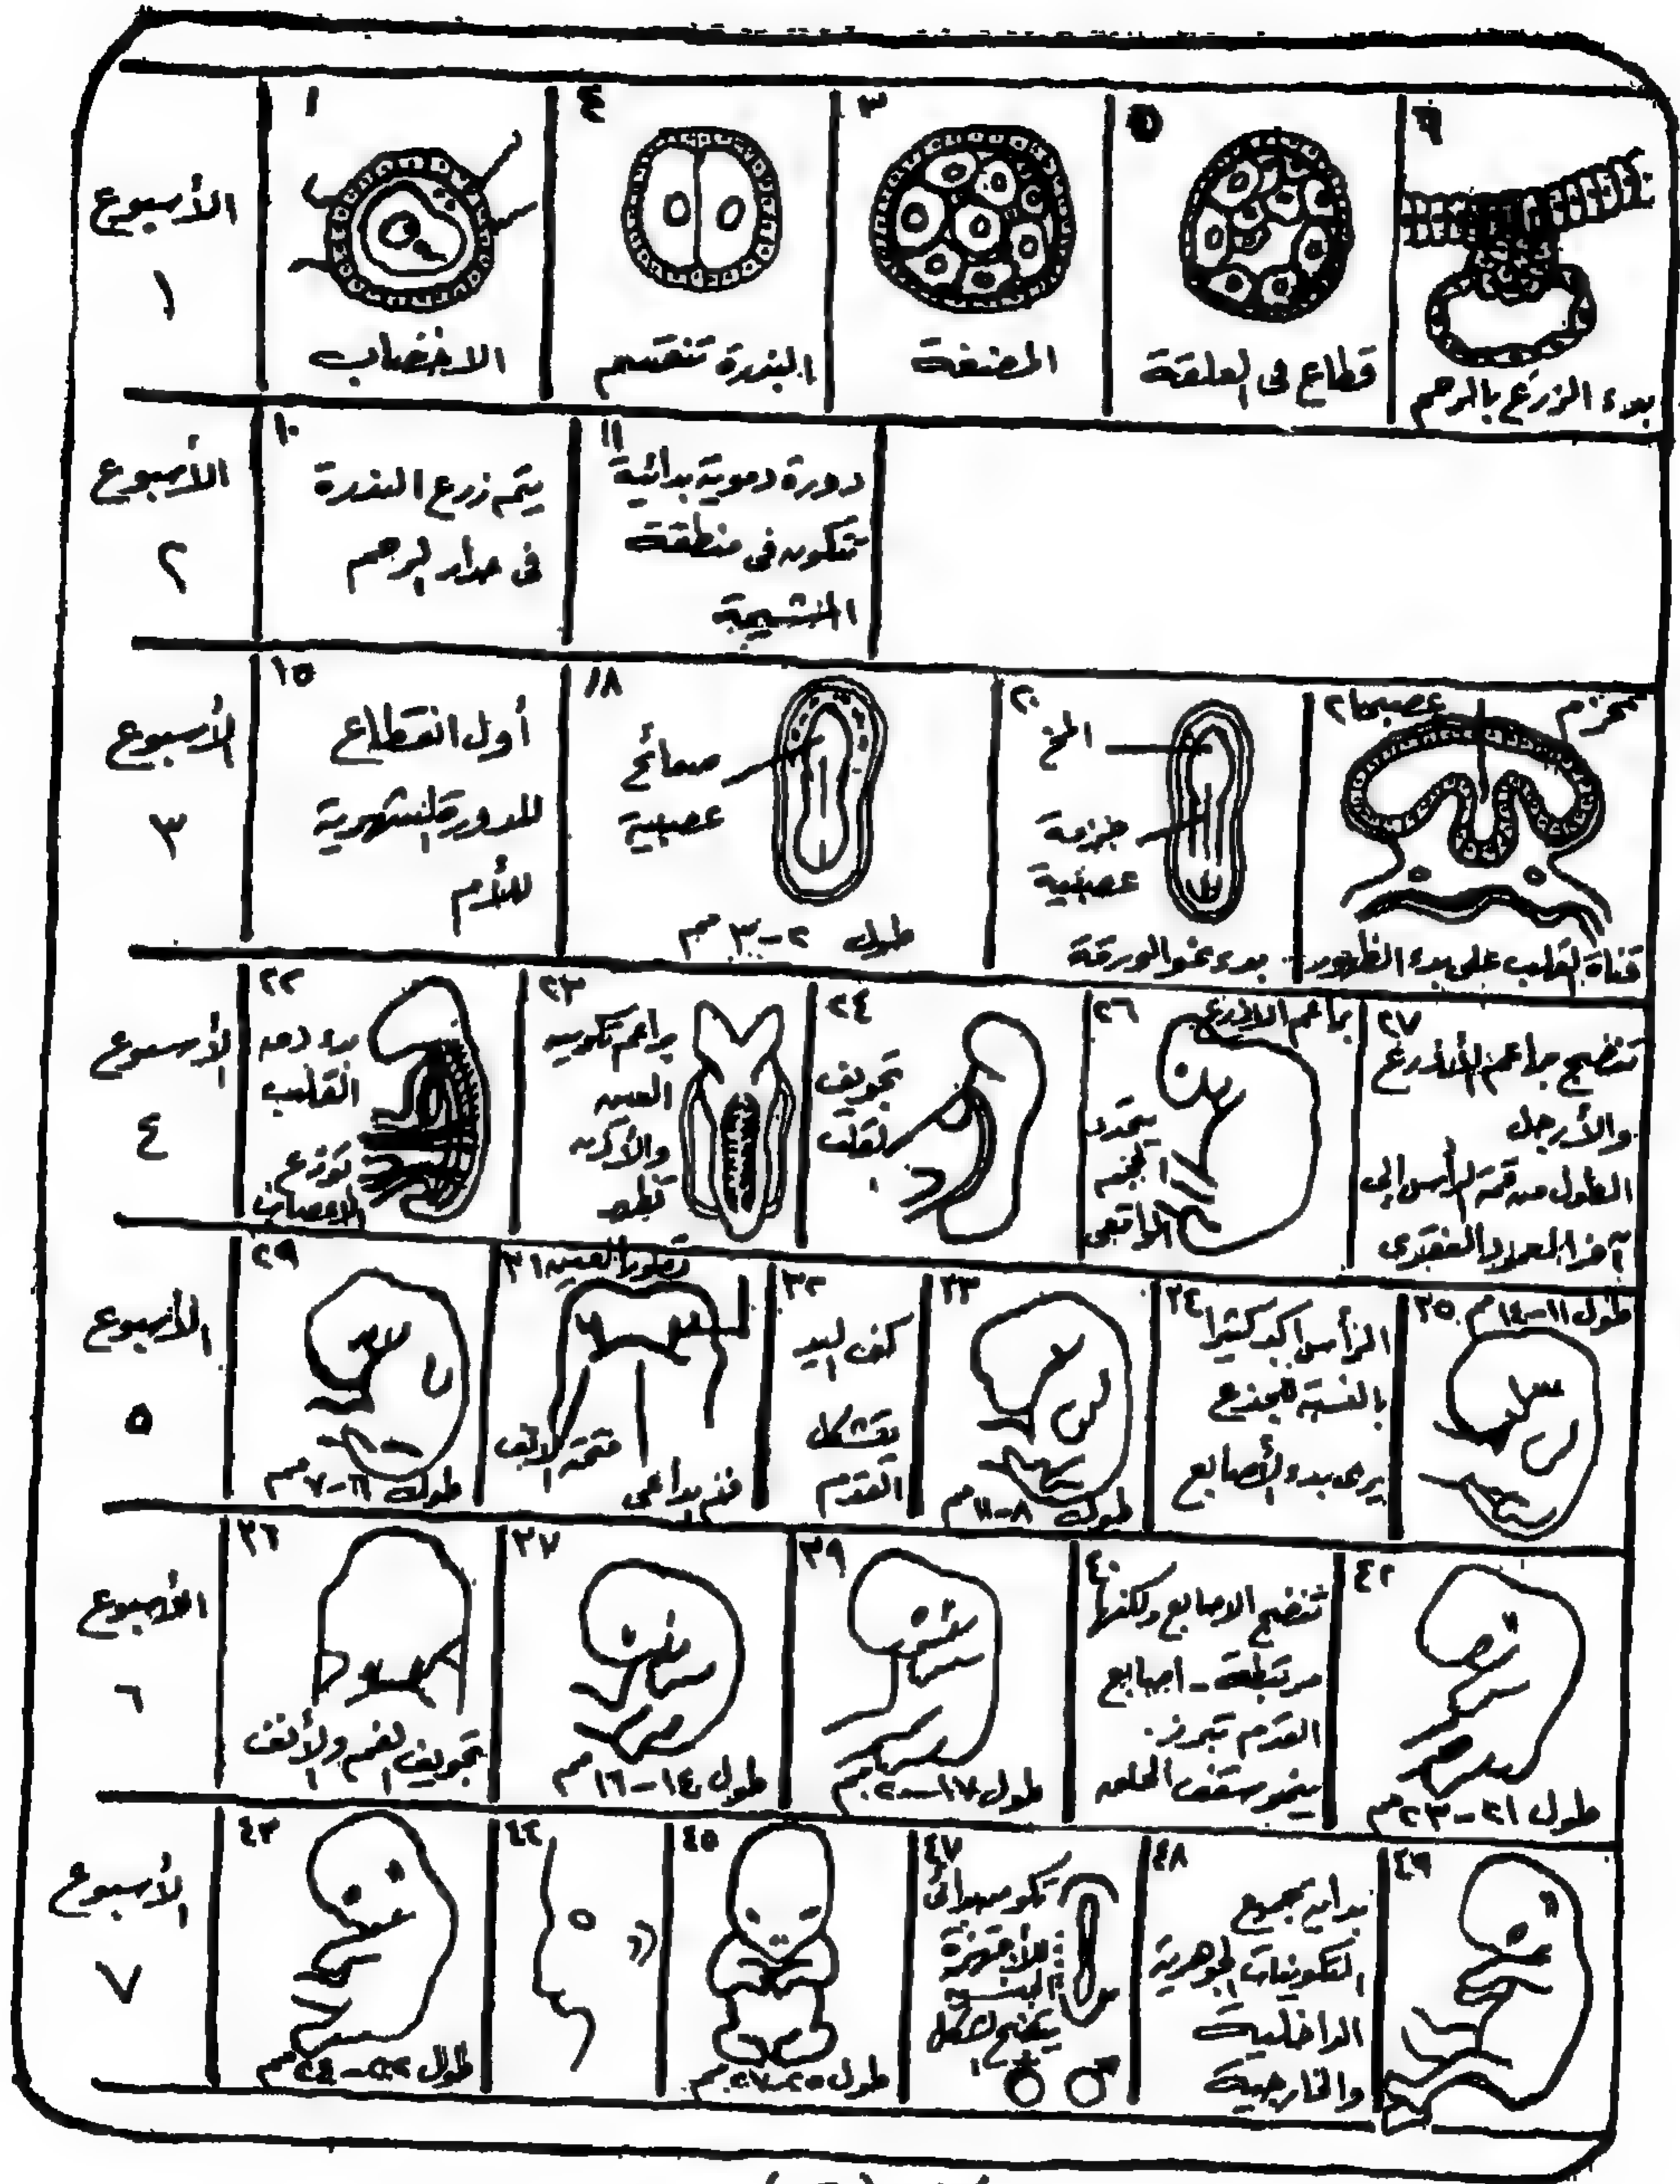 الأسبوع
١
١
الاخصاب
٤
البذرة تنقسم
٣
المضغة
٥
قطاع فى العلقة
٦
بدء الزرع بالرحم
الأسبوع
٢
١٠
يتم زرع البذرة
فى جدار الرحم
١١
دورة دموية بدائية
تتكون فى منطقة
المشيمة
الأسبوع
٣
١٥
أول انقطاع
للدورة الشهرية
للأم
١٨
صفائح
عصبية
طول ٢-٣ مم
٢٠
المخ
حزمة
عصبية
بدء نمو الورقة
قناة القلب على بدء الظهور
الأسبوع
٤
٢٢
بدء دق
القلب
توزع
الاعصاب
٢٣
براعم تكوين
العين
والأذن
تظهر
٢٤
تجويف
القلب
٢٦
براعم الاذرع
٢٧
تتضح براعم الأذرع
والأرجل
الطول من قمة الرأس إلى
آخر العمود الفقرى
الأسبوع
٥
٢٩
طول ٦-٧ مم
٣١
تطور العين
فتحة الانف
فم بدائى
٣٢
كف اليد
يتشكل
القدم
٣٣
طول ٨-١١ مم
٣٤
الرأس اكبر كثيرا
بالنسبة للجذع
يرى بدء الأصابع
٣٥
طول ١١-١٤ مم
الأسبوع
٦
٣٦
تجويف الفم والأنف
٣٧
طول ١٤-١٦ مم
٣٩
طول ١٧-٢٠ مم
٤٠
تتضح الاصابع ولكنها
مرتبطة - اصابع
القدم تبرز
ينمو سقف الحلق
٤٢
طول ٢١-٢٣ مم
الأسبوع
٧
٤٣
طول ٢٢-٢٤ مم
٤٤
٤٥
طول ٢٥-٢٧ مم
٤٧
للأجهزة
يتضح الشكل
٤٨
جميع
التكوينات الجوهرية
الداخلية
والخارجية
٤٩